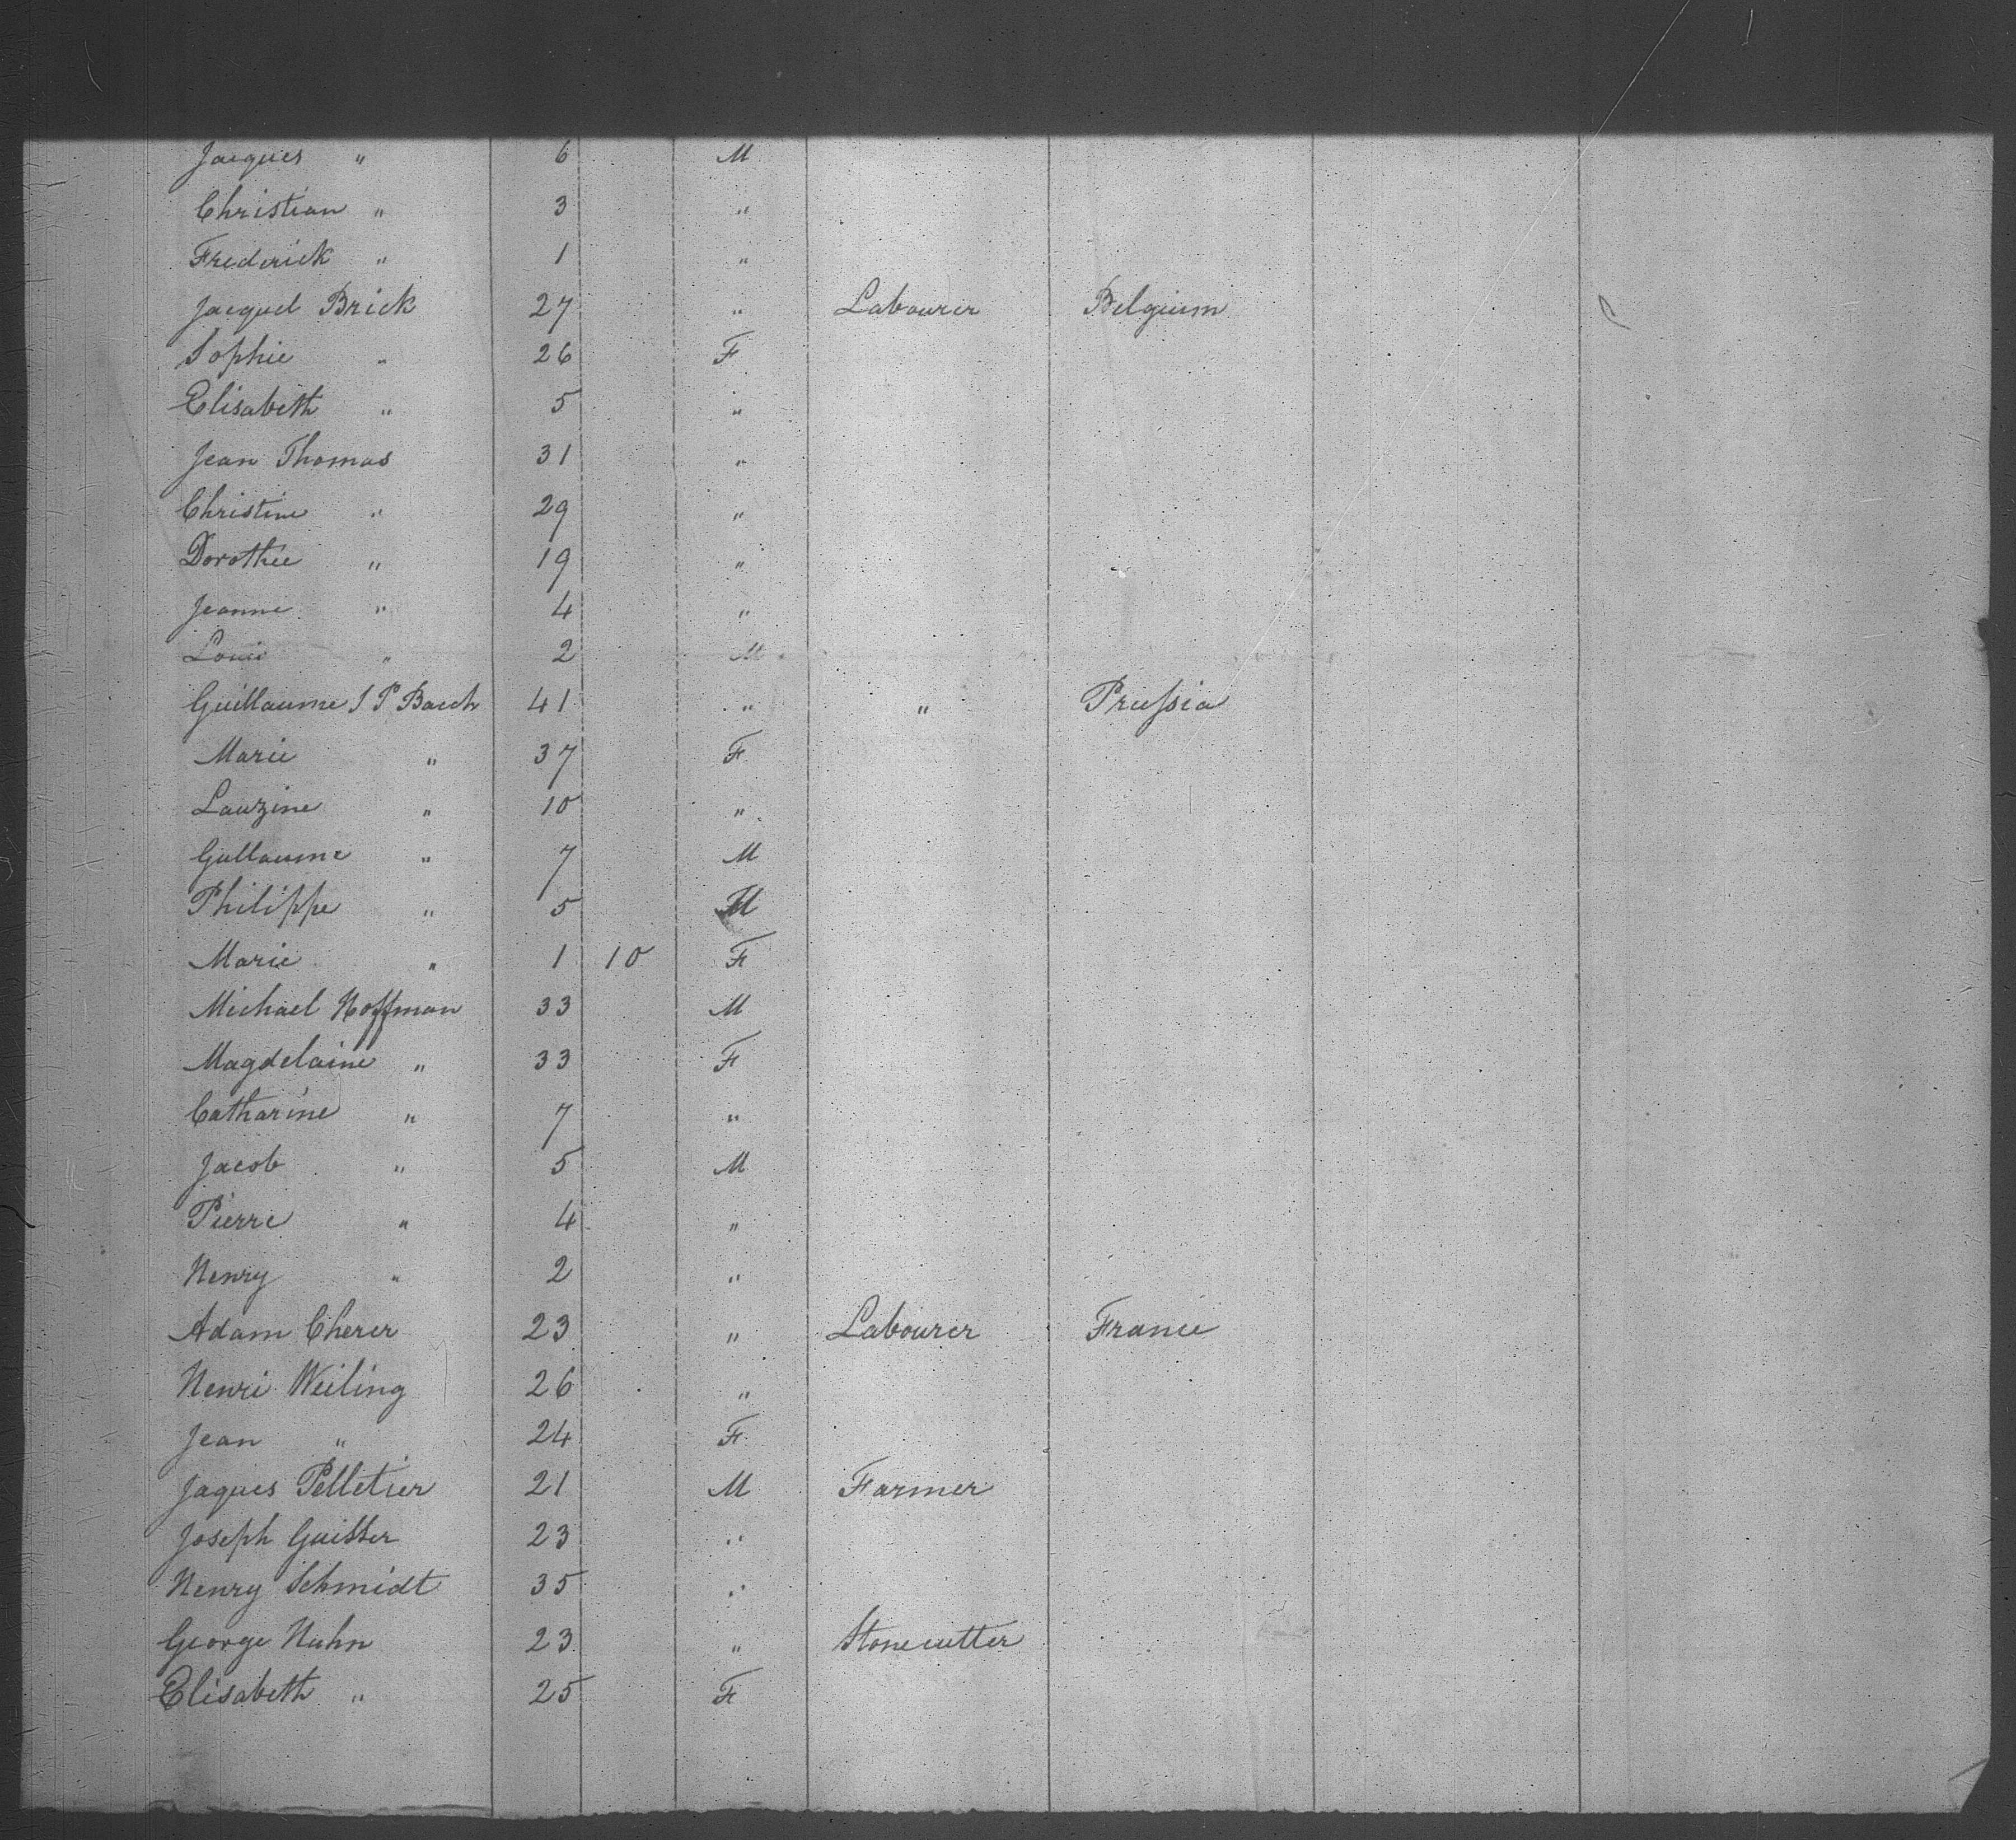 Jacques " 6 M
Christian " 3 "
Frederick " 1 "
Jacquel Brick 27 " Labourer Belgium
Sophie " 26 F
Elisabeth " 5 "
Jean Thomas 31 "
Christine " 29 "
Dorothée " 19 "
Jeanne " 4 "
Louis " 2 M
Guillaume J P Bach 41 " " Prussia
Marie " 37 F
Lauzine " 10 "
Gullaume " 7 M
Philippe " 5 M
Marie " 1 10 F
Michael Hoffman 33 M
Magdelaine " 33 F
Catharine " 7 "
Jacob " 5 M
Pierre " 4 "
Henry " 2 "
Adam Cherer 23 " Labourer France
Henri Weiling 26 "
Jean " 24 F
Jaques Pelletier 21 M Farmer
Joseph 23 "
Henry Schmidt 35 "
George Hahn 23 " Stonecutter
Elisabeth " 25 F